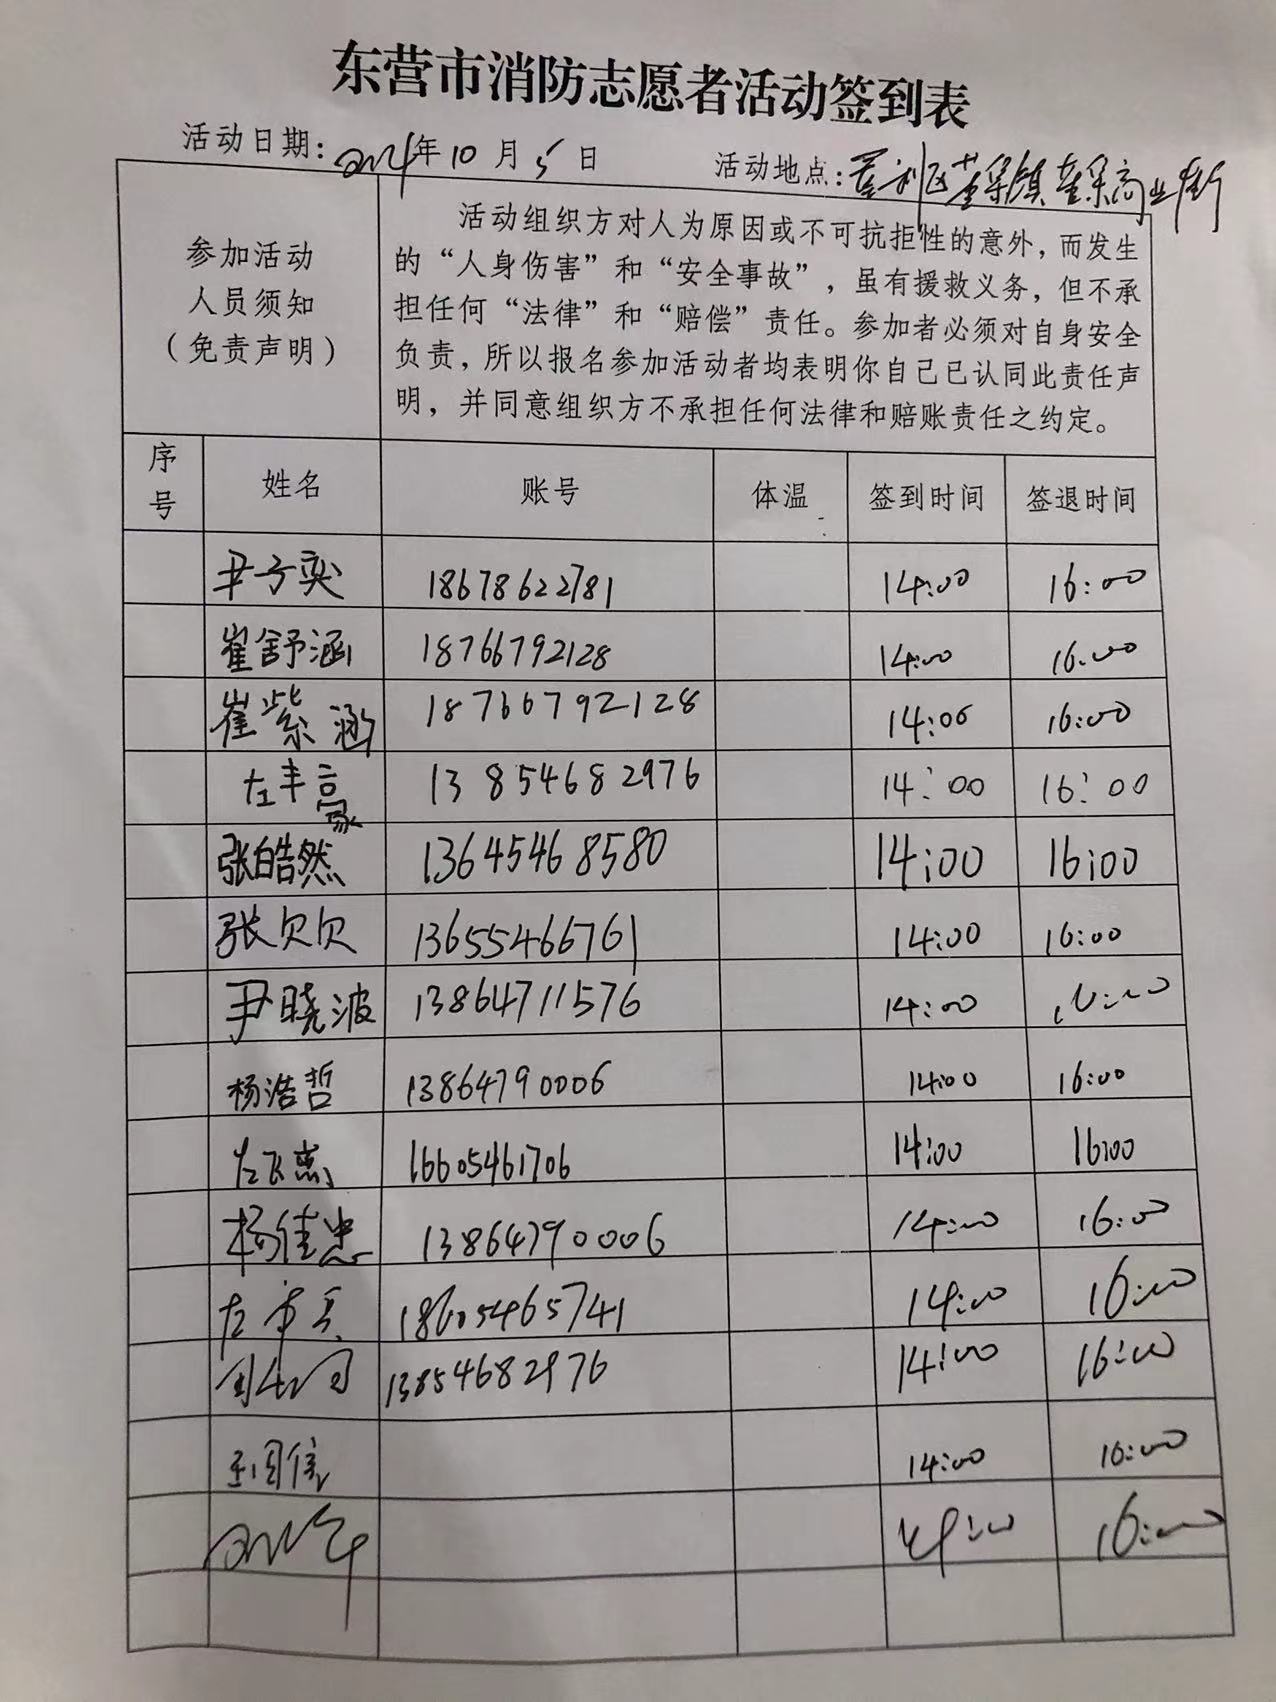 东营市消防志愿者活动签到表
活动日期: 2024年10月5日 活动地点: 垦利区董集镇董集商业街
参加活动
人员须知
(免责声明)
活动组织方对人为原因或不可抗拒性的意外，而发生
的“人身伤害”和“安全事故”，虽有援救义务，但不承
担任何“法律”和“赔偿”责任。参加者必须对自身安全
负责，所以报名参加活动者均表明你自己已认同此责任声
明，并同意组织方不承担任何法律和赔账责任之约定。
序号 姓名 账号 体温 签到时间 签退时间
尹子奕 18678622781 14:00 16:00
崔舒涵 18766792128 14:00 16:00
崔紫涵 18766792128 14:00 16:00
左丰豪 13854682976 14:00 16:00
张皓然 13645468580 14:00 16:00
张欠欠 13655466761 14:00 16:00
尹晓波 13864711576 14:00 16:00
杨浩哲 13864790006 14:00 16:00
左飞燕 16605461706 14:00 16:00
杨佳忠 13864790006 14:00 16:00
左 18605465741 14:00 16:00
13854682976 14:00 16:00
14:00 16:00
14:00 16:00